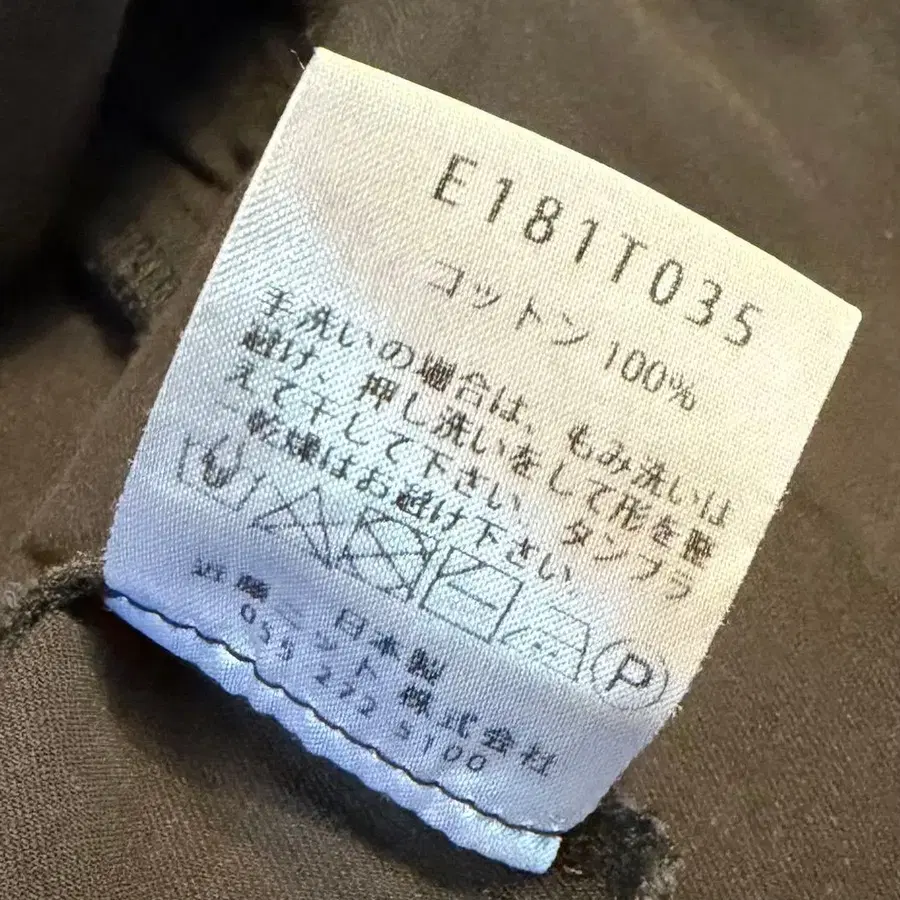 E181T035
コットン 100%
手洗いの場合は、もみ洗いは
避け、押し洗いをして形を整
えて干して下さい、タンブラ
ー乾燥はお避け下さい
P
日本製
近藤ニット 株式会社
055 272 5100